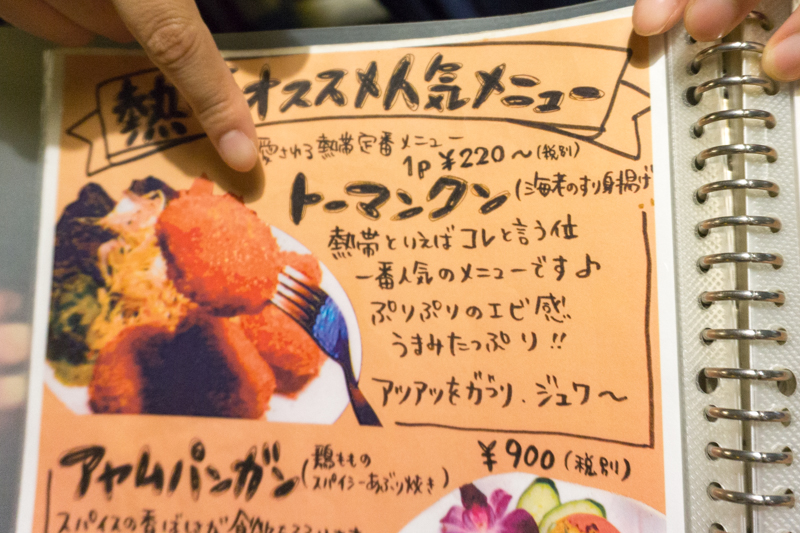 熱 オススメ人気メニュー
愛される熱帯定番メニュー
1P ¥220～(税別)
トーマンクン(海老のすり身揚げ
熱帯といえばコレと言う位
一番人気のメニューです♪
ぷりぷりのエビ感
うまみたっぷり!!
アツアツをガブリ、ジュワ～
アヤムパンガン(鶏ももの
スパイシーあぶり焼き)
¥900(税別)
スパイスの香ばしさが食欲